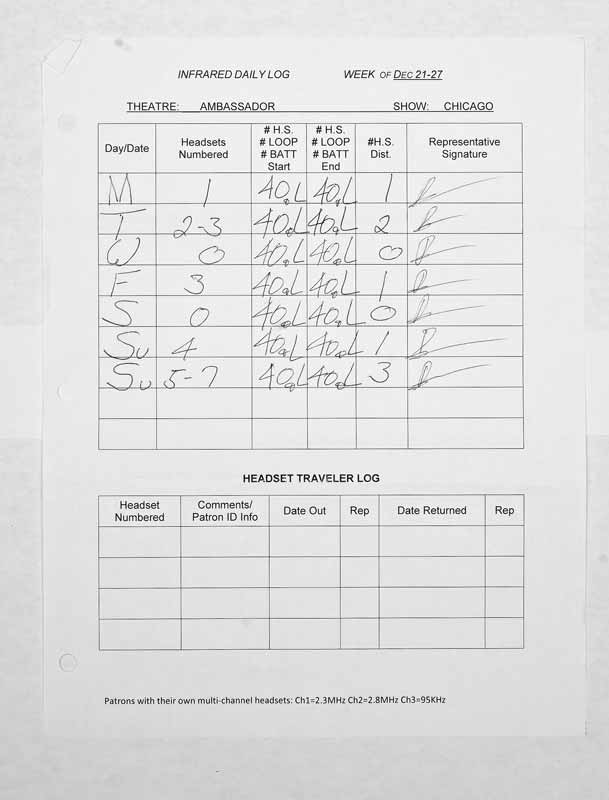 INFRARED DAILY LOG WEEK OF DEC 21-27
THEATRE: AMBASSADOR SHOW: CHICAGO
Day/Date Headsets Numbered # H.S. # LOOP # BATT Start # H.S. # LOOP # BATT End #H.S. Dist. Representative Signature
M 1 40 L 40 L 1
T 2-3 40 L 40 L 2
W 0 40 L 40 L 0
F 3 40 L 40 L 1
S 0 40 L 40 L 0
Su 4 40 L 40 L 1
Su 5-7 40 L 40 L 3
HEADSET TRAVELER LOG
Headset Numbered Comments/ Patron ID Info Date Out Rep Date Returned Rep
Patrons with their own multi-channel headsets: Ch1=2.3MHz Ch2=2.8MHz Ch3=95KHz